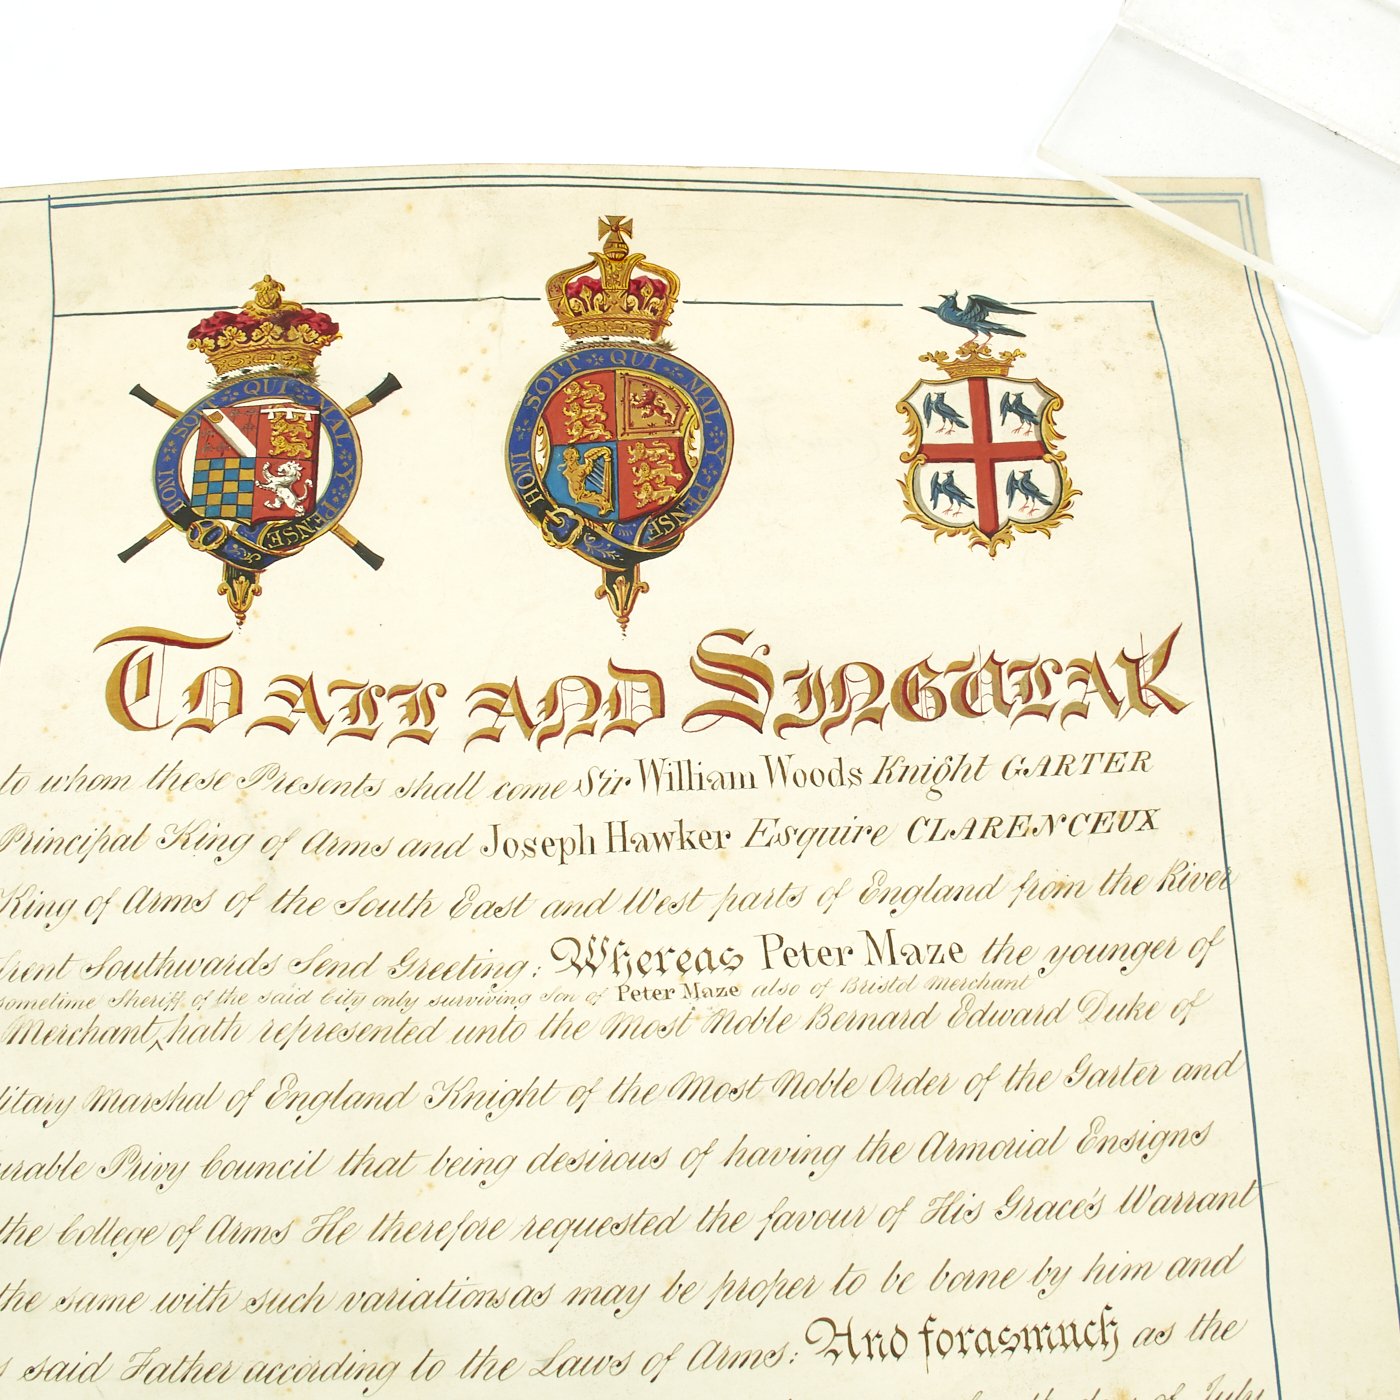 HONI SOIT QUI MAL Y PENSE
HONI SOIT QUI MAL Y PENSE
To all and Singular
to whom these Presents shall come Sir William Woods Knight GARTER
Principal King of Arms and Joseph Hawker Esquire CLARENCEUX
King of Arms of the South East and West parts of England from the River
Trent Southwards Send Greeting: Whereas Peter Maze the younger of
sometime Sheriff of the said City only surviving Son of Peter Maze also of Bristol Merchant
Merchant, hath represented unto the Most Noble Bernard Edward Duke of
Marshal of England Knight of the Most Noble Order of the Garter and
Privy Council that being desirous of having the Armorial Ensigns
the College of Arms He therefore requested the favour of His Grace's Warrant
the same with such variations as may be proper to be borne by him and
said Father according to the Laws of Arms: And forasmuch as the
day of July